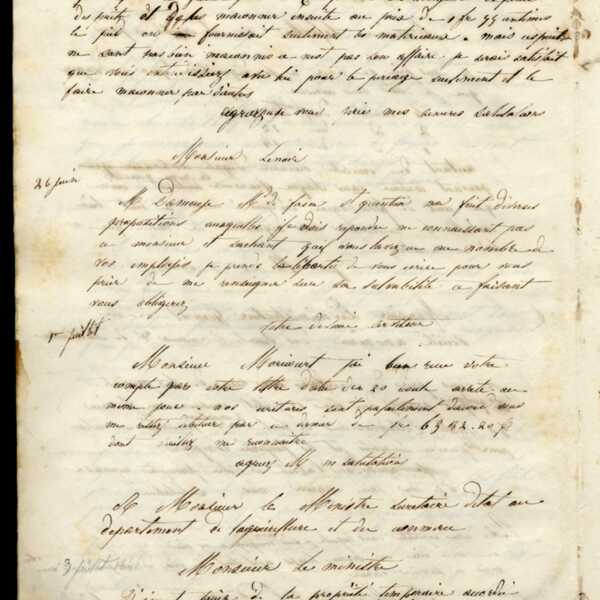 des puits et de les maçonner ensuite au prix de 1 fr 75 centimes
le pied en fournissant seulement les matériaux. mais
ne sont pas bien maçonnés ce n'est pas son affaire. je serais satisfait
que vous pour le perçage seulement et le
faire maçonner par d'autres
agréez je vous prie mes sincères salutations
Monsieur Lenoir
26 juin
M. Dameuse Md de St quentin ma fait diverses
propositions auxquelles je dois repondre ne connaissant pas
ce monsieur et sachant que vous lavez eu au nombre de
vos employés, je prends la liberté de vous ecrire pour vous
prier de me renseigner sur sa solvabilité ce faisant
vous obligerez
votre devoué serviteur
1er juillet
Monsieur Moricourt j'ai bien recu votre
compte par votre lettre datée du 20 arreté au
même jour. nos ecritures sont parfaitement d'accord vous
me restez debiteur par ce de fr 6352.20
dont me reconnaitre
agreez M. m salutation
A Monsieur le Ministre secretaire detat au
departement de lagriculture et du commerce
3 juillet
Monsieur le ministre
de la propriété temporaire